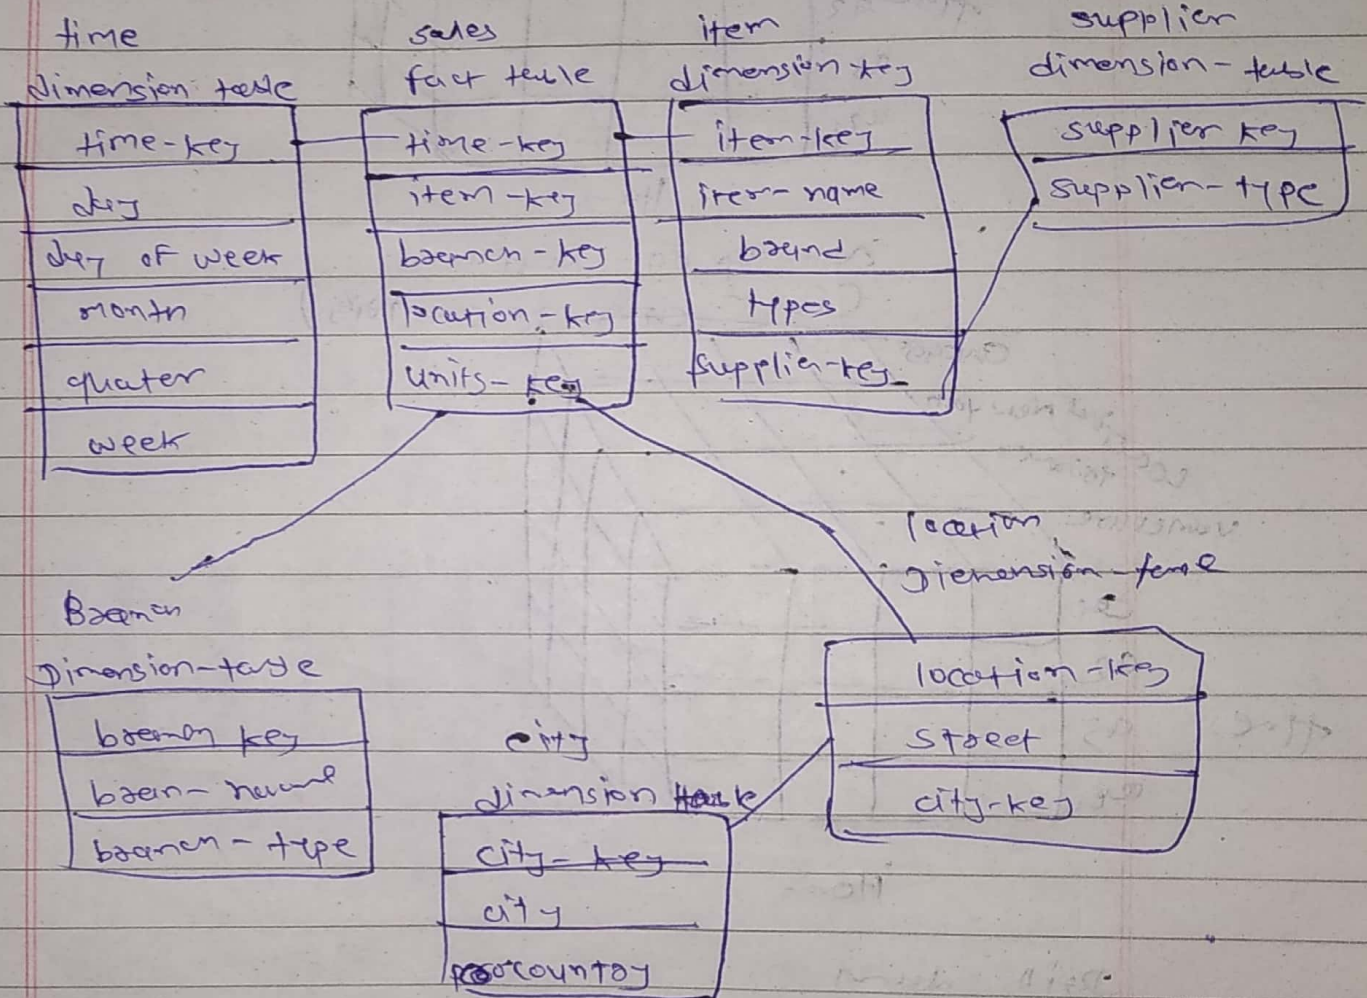 time
dimension table
time-key
day
day of week
month
quater
week
sales
fact table
time-key
item-key
branch-key
location-key
units-key
item
dimension key
item-key
item-name
brand
types
supplier-key
supplier
dimension-table
supplier key
supplier-type
Branch
Dimension-table
branch key
bran-name
branch-type
city
dimension table
city-key
city
country
location
Dimension-table
location-key
street
city-key